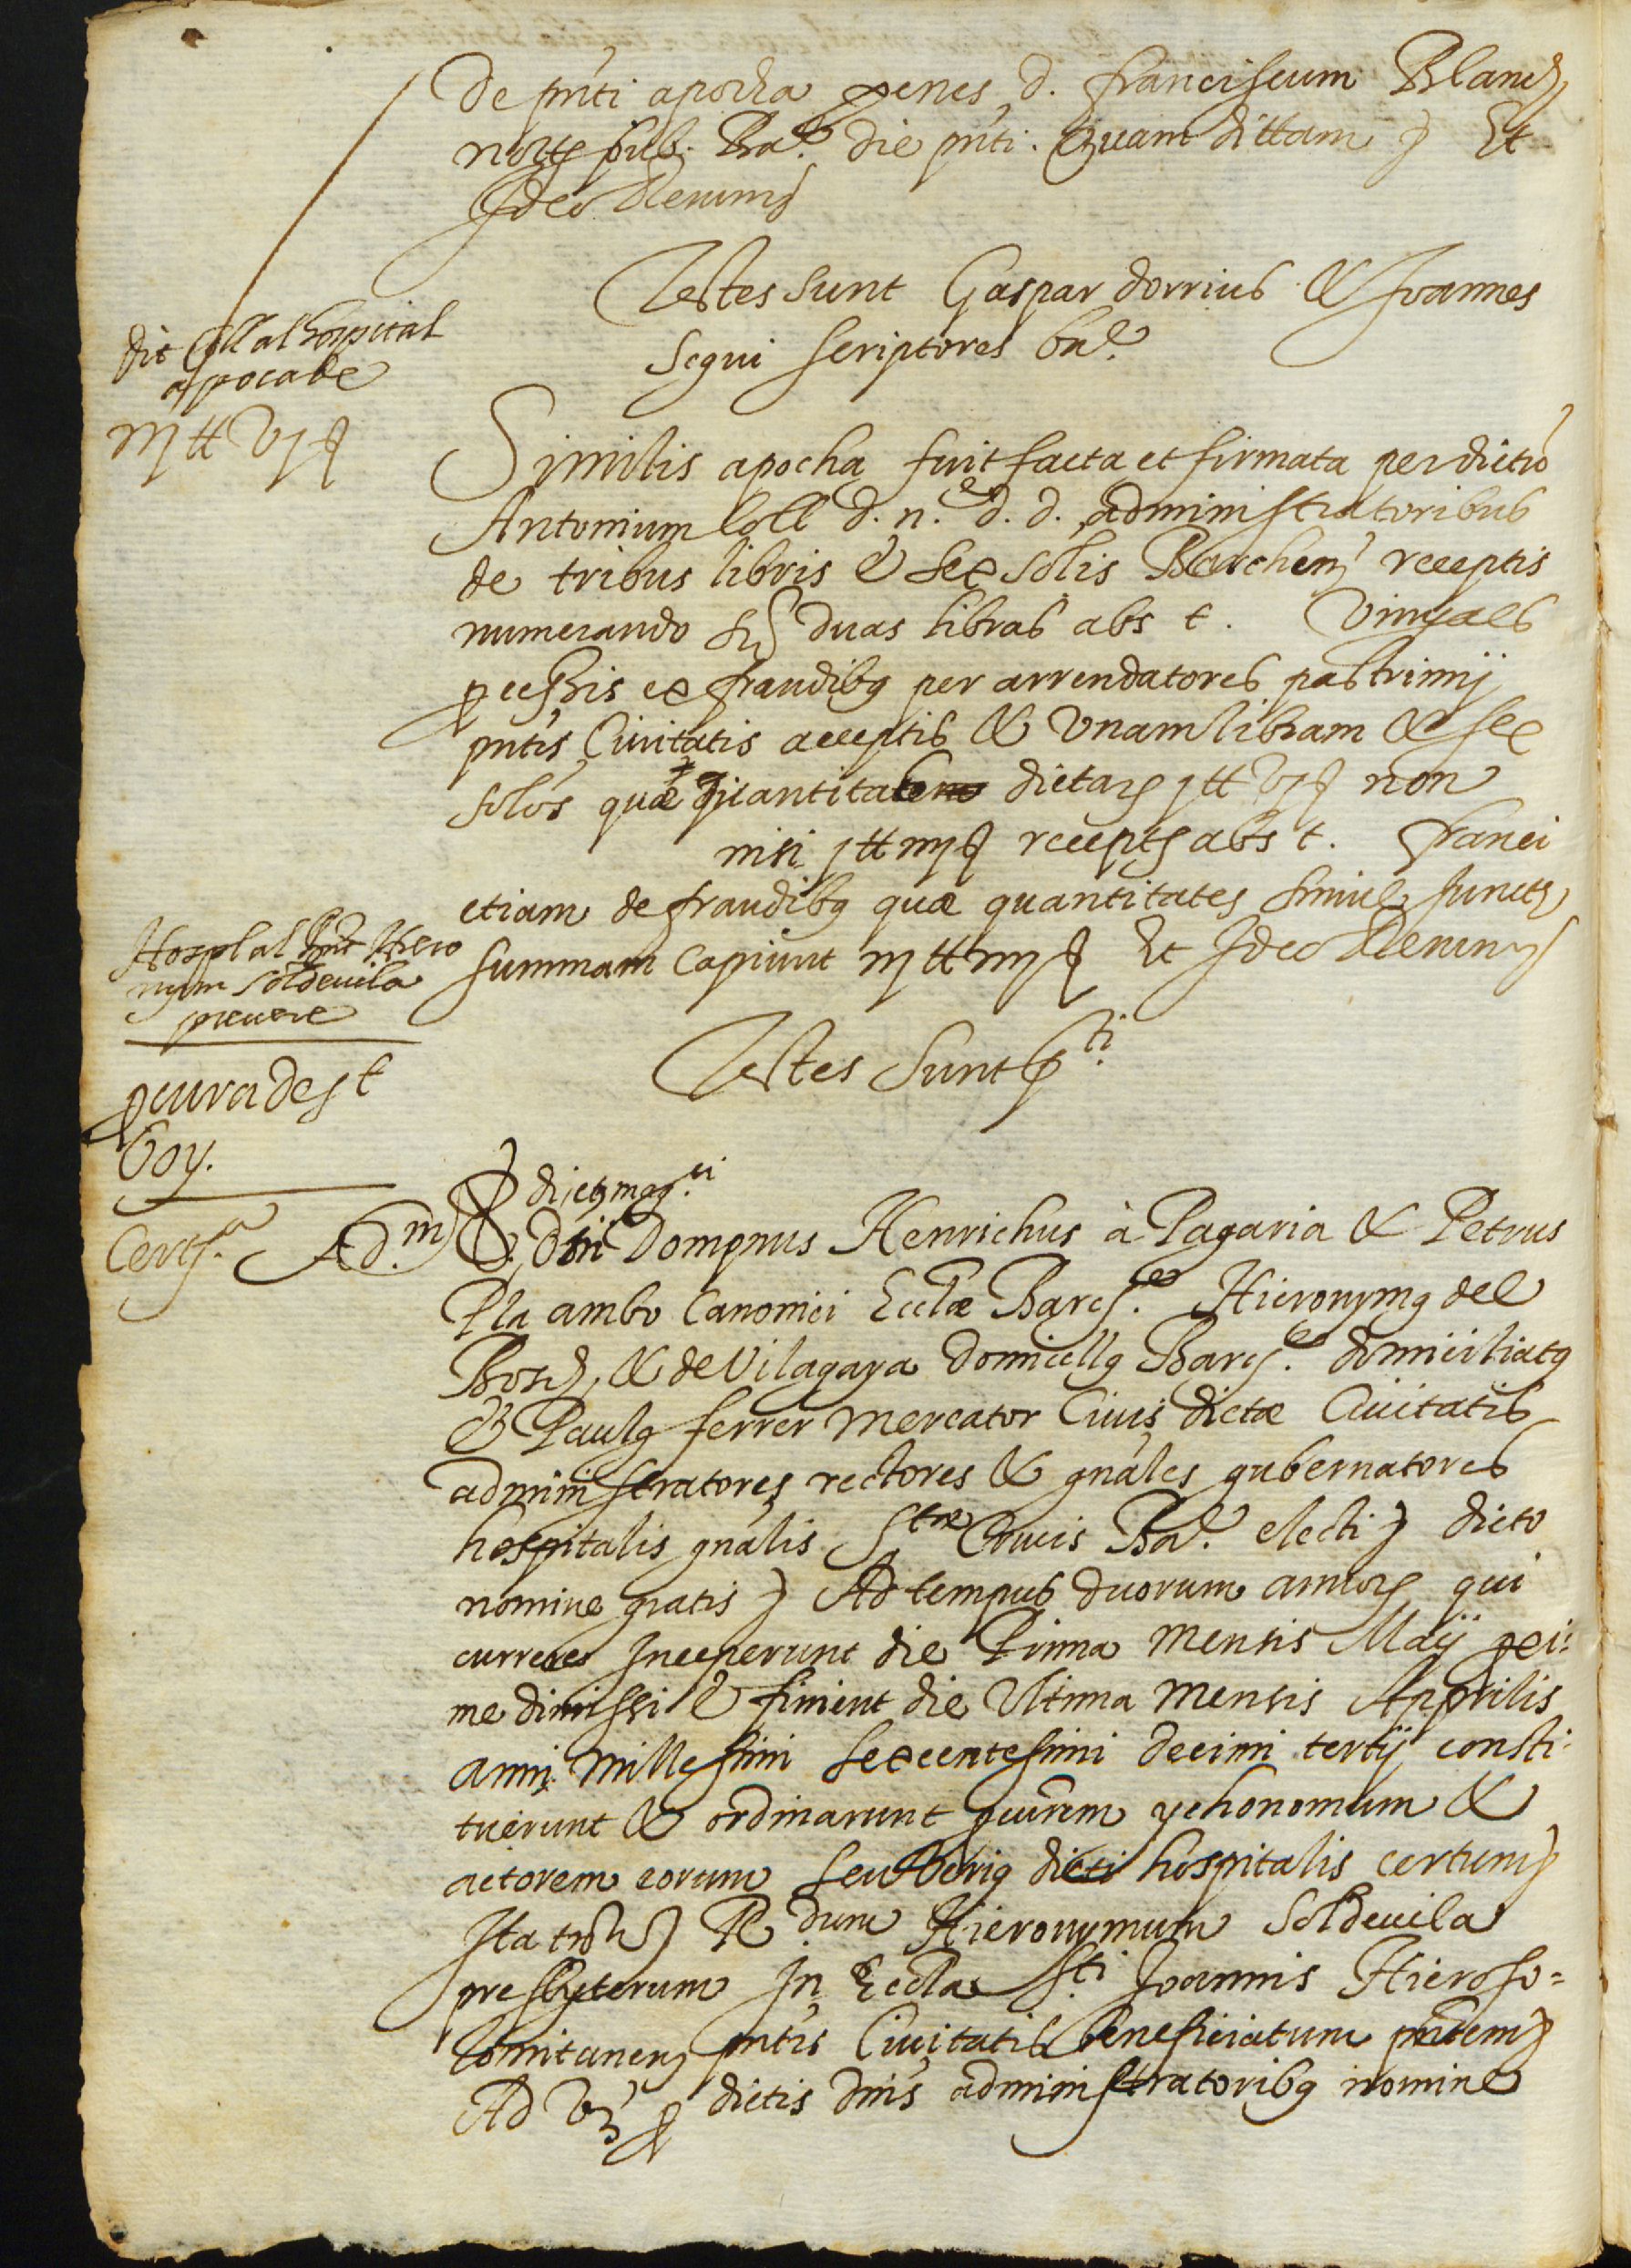 de pnti apocha penes d. franciscum Blanch
nots pub. Ba.e die pnti. Quam dictam Et
Ideo Renuns
Testes sunt Gaspar dorrius & Joannes
Segui scriptores ba.e
dit Coll al hospital
apoca de
iij tt vj s
Similis apocha fuit facta et firmata per dictu
Antonium Coll d. n.e d. d. administratoribus
de tribus libris & sex solis Barchens receptis
numerando duas libras abs t. Vinyals
pcessis ex fraudibq per arrendatores pastrimij
pntis Civitatis acceptis & Unam libram & sex
solos quæ quantitatem dictarz j tt vj s non
nisi j tt iiij s recepts abs t. Franci
etiam de fraudibq quæ quantitates simul juncts
summam capiunt iij tt iiij s Et Ideo Renuns
Testes sunt p.ti
Hospl al Rnt Hiero
nym Soldevila
prevere
pcura des t
Boy.
Certs.a Ad.m
dicts mag.ci
Dni Dompnus Henrichus à Pagaria & Petrus
Pla ambo Canonici Ecclæ Barcs.e Hieronymq del
Bosch, & de Vilagaya Domicellq Barcs.e domiciliatq
& Paulq ferrer Mercator Civis dictæ Civitatis
administratores rectores & gnales gubernatores
hospitalis gnalis Stæ Crucis Ba.e electi dicto
nomine gratis Ad tempus duorum annorz qui
currere Inceperunt die Prima Mensis Maij pri:
me dimissi & finient die Ultima Mensis Apprilis
anni Millesimi Sexcentesimi decimi tertij consti:
tuerunt & ordinarunt pcurem ychonomum &
actorem eorum seu Veriq dicti hospitalis certum
Ita R.dum Hieronymum Soldevila
presbyterum In Eccla S.ti Joannis Hieroso=
lomitanens pntis Civitatis Beneficiatum pntem
Ad p dictis dnis administratoribq nomine